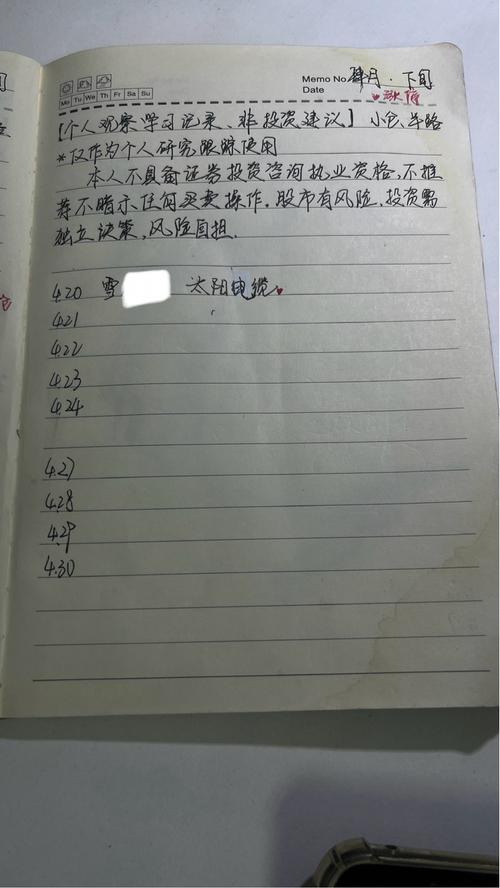 Memo No. 肆月·下旬
Mo Tu We Th Fr Sa Su
Date
【个人观察学习记录、非投资建议】 小仓、半路
*仅作为个人研究跟踪使用
本人不具备证券投资咨询执业资格,不推
荐不暗示任何买卖操作。股市有风险,投资需
独立决策,风险自担.
4.20 雪 太阳电缆
4.21
4.22
4.23
4.24
4.27
4.28
4.29
4.30